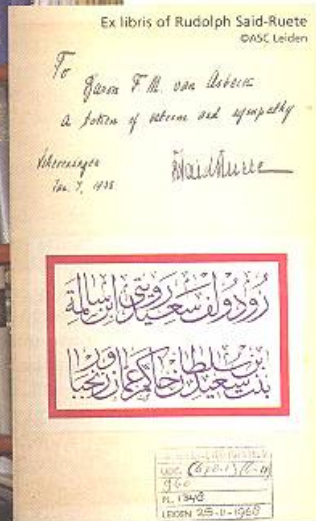 Ex libris of Rudolph Said-Ruete
©ASC Leiden
To
Baron F. M. van Asbeck
a token of esteem and sympathy
Scheveningen
Jan. 7, 1938
RSaidRuete
رودولف سعيد رويتي ابن سالمة
بنت سعيد بن سلطان حاكم عمان وزنجبار
UDC
960
PL. 1348
LEIDEN 25-11-1968